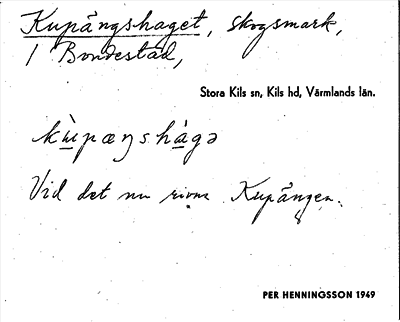 Kupängshaget, skogsmark,
1 Bondestad,
Stora Kils sn, Kils hd, Värmlands län.
kùpæŋshàgə
Vid det nu rivna Kupängen.
PER HENNINGSSON 1949